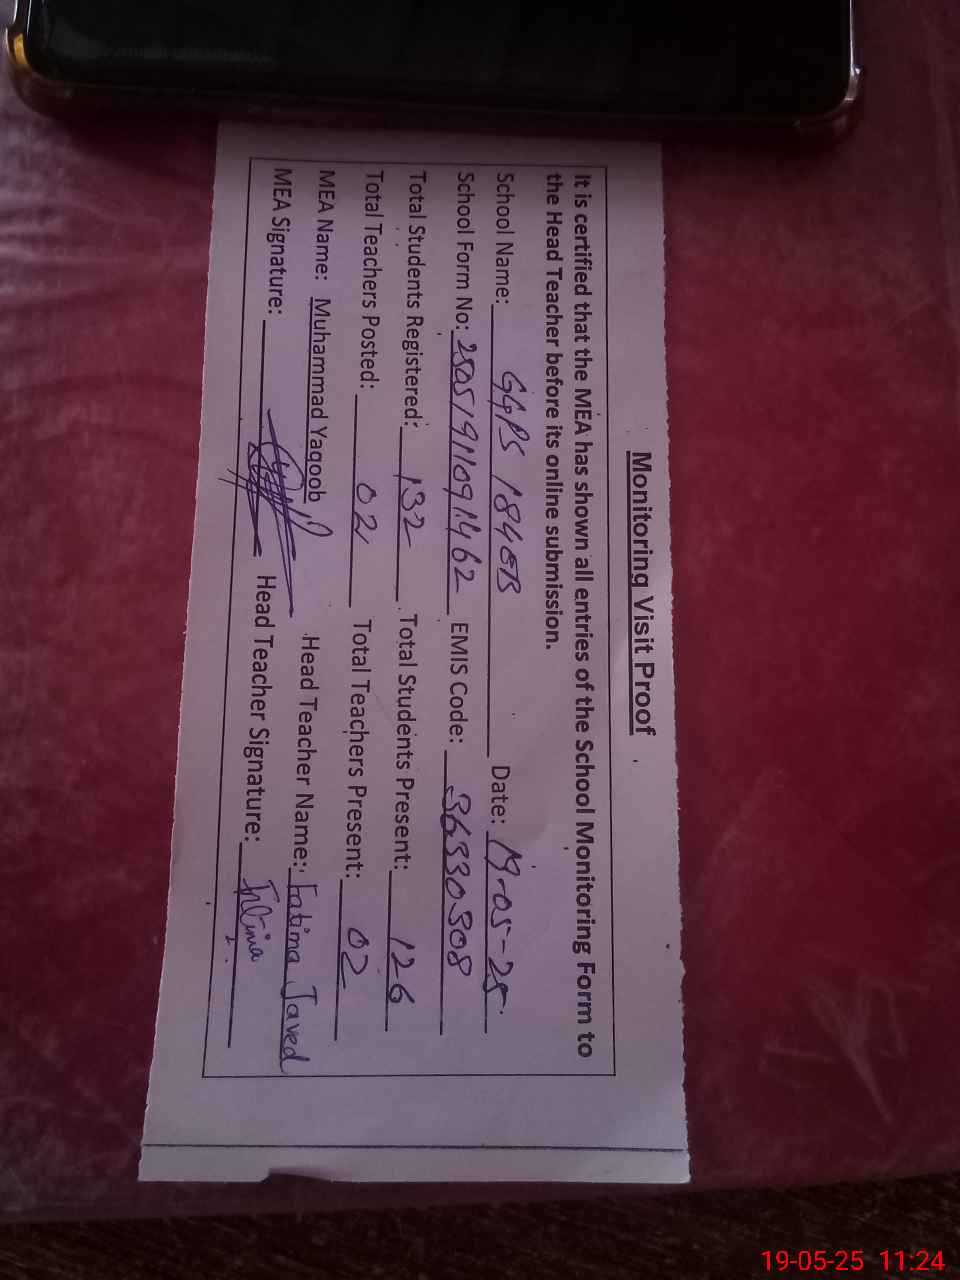 Monitoring Visit Proof
It is certified that the MEA has shown all entries of the School Monitoring Form to
the Head Teacher before its online submission.
School Name: GGPS 184EB Date: 19-05-25
School Form No: 25051911091462 EMIS Code: 36330308
Total Students Registered: 132 Total Students Present: 126
Total Teachers Posted: 02 Total Teachers Present: 02
MEA Name: Muhammad Yaqoob Head Teacher Name: Fatima Javed
MEA Signature: Head Teacher Signature: Fatima
19-05-25 11:24